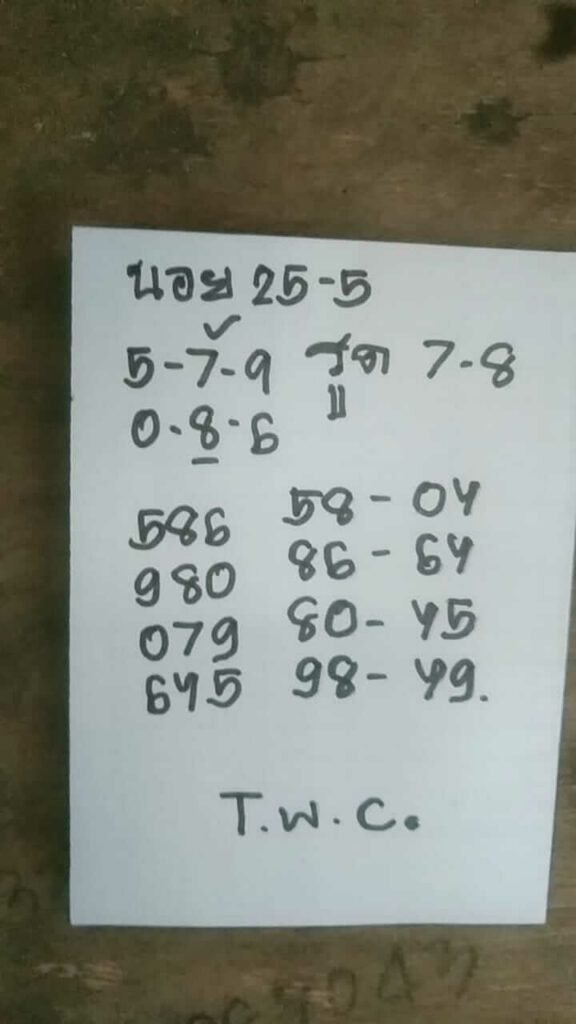 นอย 25-5
5-7-9 รูด 7-8
0-8-6
586 58-04
980 86-64
079 80-45
645 98-49.
T.W.C.